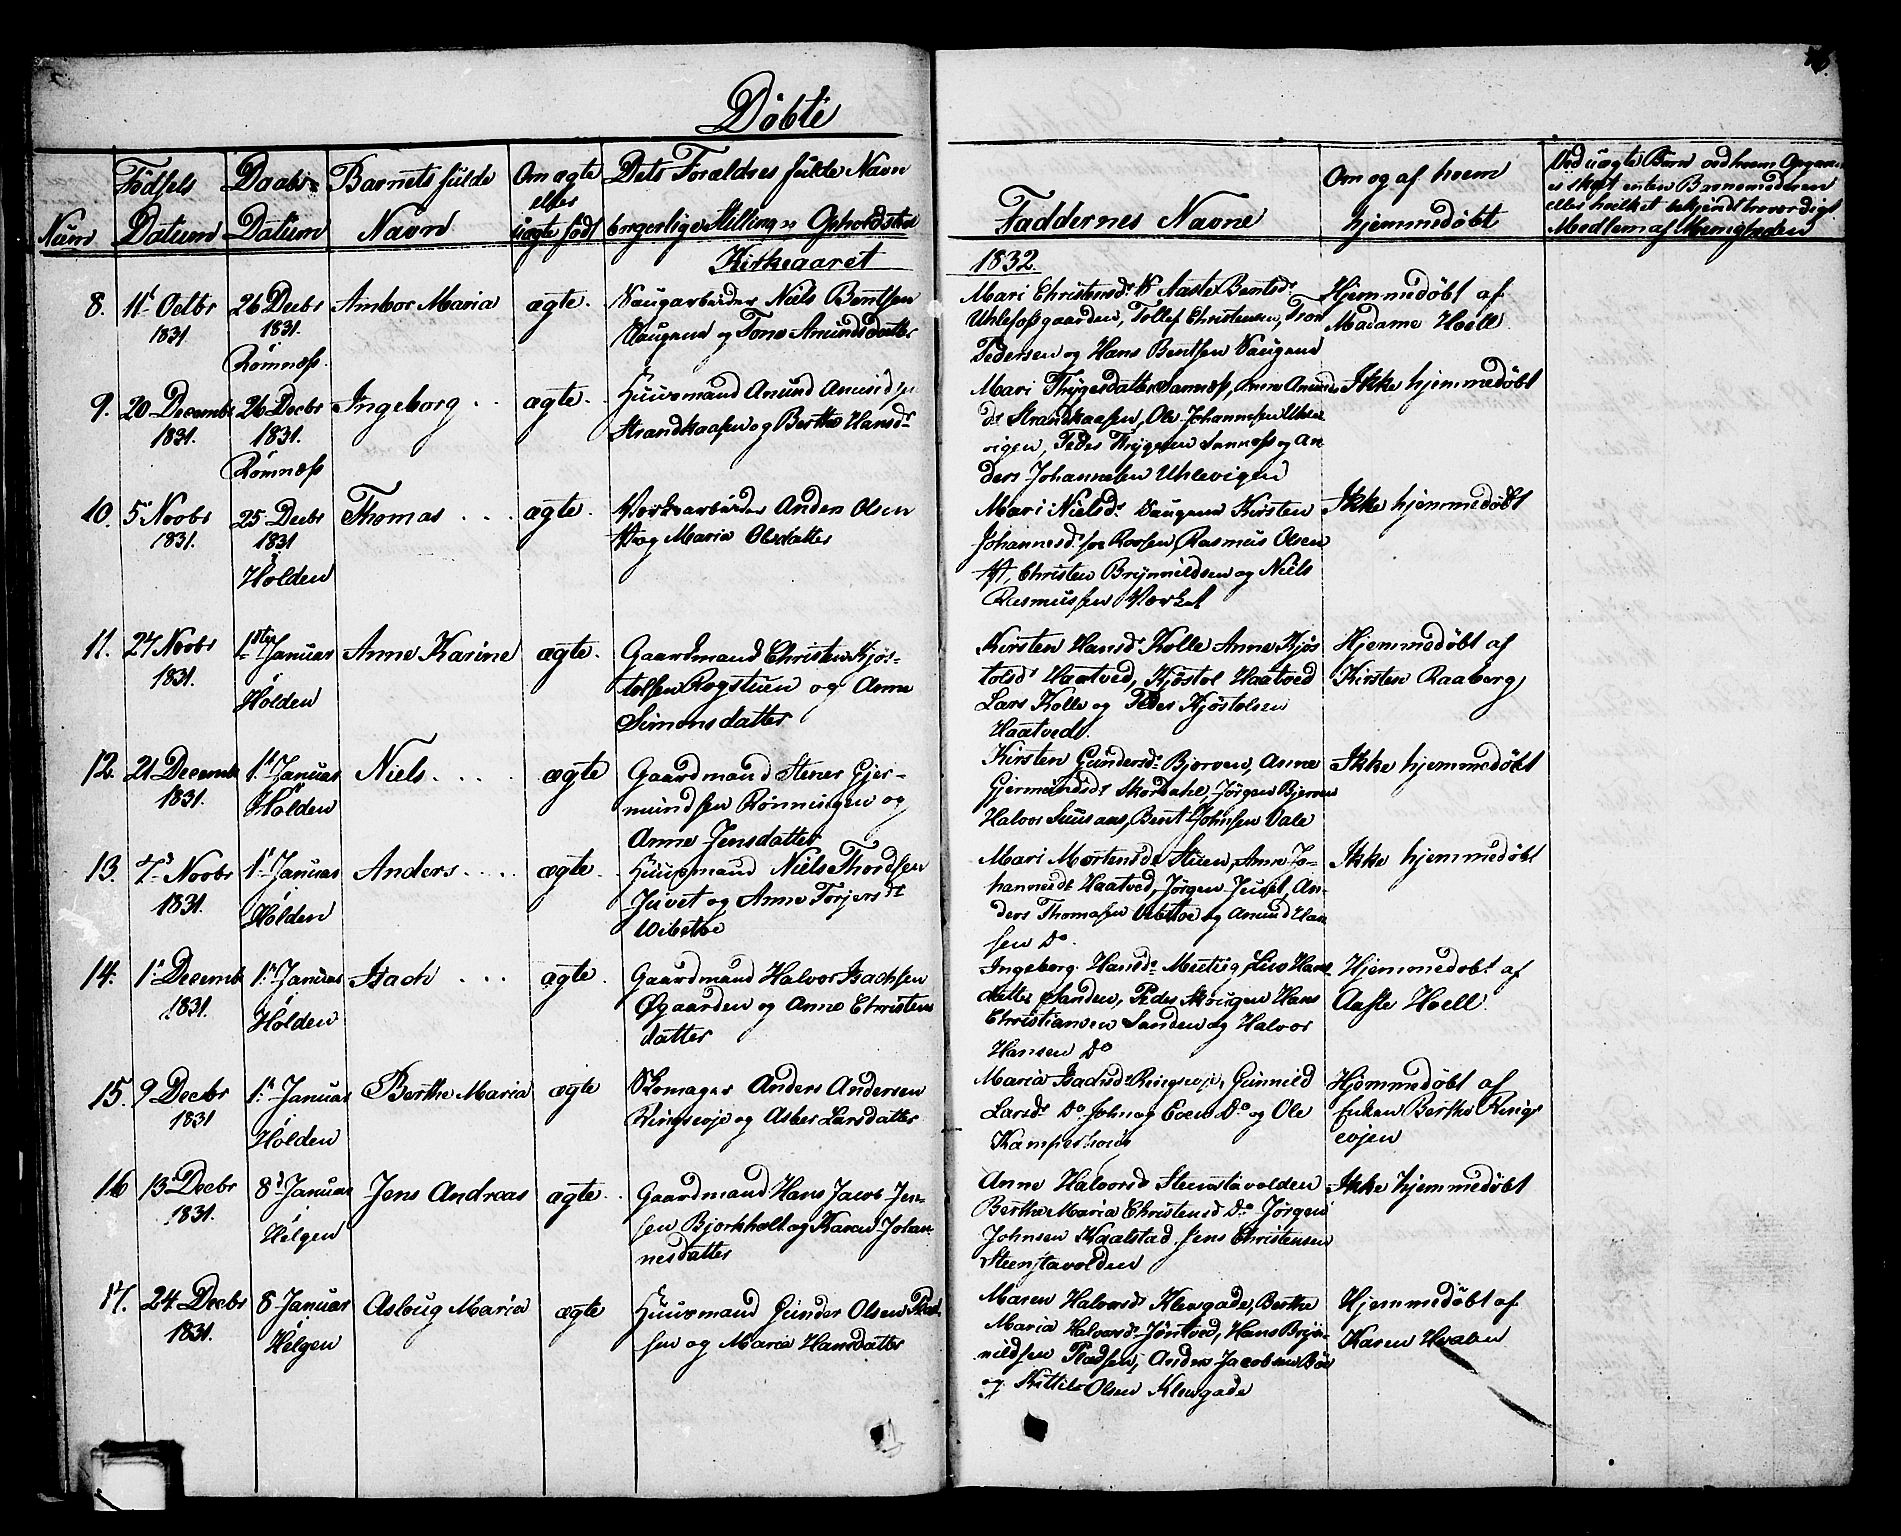 Döbte
Num
Födsels Datum
Daabs Datum
Barnets fulde Navn
Om ægte eller uægte født
Dets Forældres fulde Navn borgerlige Stilling og Opholdsted
Faddernes Navne
Om og af hvem hjemmedøbt
Ved uægte Børn ved hvem Opgaven
er skeet enten Barnemoderen
eller hvilket bekjendt troværdigt
Medlem af Menigheden
Kirkeaaret
1832
8.
11t Octbr
1831
26 Decbr
1831.
Rømnæss
Ambor Maria
ægte.
Saugarbeider Niels Bentsen
Saugene og Tone Amundsdatter
Mari Christensdr Aaste Bentsdr
Uhlefossgaarden, Tollef Christensen, Tron
Pedersen og Hans Bentsen Saugene
Hjemmedøbt af
Madame Hoell
9.
20 Decembr
1831.
26 Decbr
1831.
Rømnæss
Ingeborg
ægte.
Huusmand Amund Amundsen
Strandkaasen og Berthe Hansdr
Mari Thygesdatter Sannæss, Anne Amunds
dr Strandkaasen, Ole Johannesen Uhle
vigen, Peder Thygesen Sannæss og An
ders Johannesen Uhlevigen
Ikke hjemmedøbt
10.
5 Novbr
1831.
25 Decbr
1831
Holden
Thomas
ægte.
Værksarbeider Anders Olsen
og Maria Olsdatter
Mari Nielsdr Saugene Kirsten
Johannesdr Rasmus Olsen
Christen Brynnildsen og Niels
Rasmussen Værket
Ikke hjemmedøbt
11.
27 Novbr
1831.
1ste Januar
Holden
Anne Karine
ægte.
Gaardmand Christen Kjøs-
tolsen Rogstuen og Anne
Simonsdatter
Kirsten Hansdr Kolle Anne Kjøs
tolsdr Haatved, Kjøstol Haatved
Lars Kolle og Peder Kjøstolsen
Haatvedt.
Hjemmedøbt af
Kirsten Raaberg
12.
21 Decemb
1831.
1t Januar
Holden
Niels
ægte
Gaardmand Stener Gjer-
mundsen Rønningen og
Anne Jensdatter
Kirsten Gundersdr Bjerven, Anne
Gjermundsdr Skordahl, Jørgen Bjerven
Halvor Suusaas, Bent Johnsen Vale
Ikke hjemmedøbt
13.
7 Novbr
1831.
1t Januar
Holden
Anders
ægte.
Huusmand Niels Thordsen
Juvet og Anne Torjersdr
Vibetoe
Mari Mortensdr Stuen, Anne Jo-
hannesdr Haatved, Jørgen Juvet, An-
ders Thomasen Vibetoe og Amund Han
sen Do.
Ikke hjemmedøbt
14.
1 Decemb
1831.
1 Januar
Holden
Isach
ægte.
Gaardmand Halvor Isachsen
Øgaarden og Anne Christens
datter
Ingeborg Hansdr Liv Hans
datter Sanden, Peder Skougen Hans
Christiansen Sanden og Halvor
Hansen Do
Hjemmedøbt af
Aaste Hoell.
15.
9 Decbr
1831
1 Januar
Holden
Berthe Maria
ægte
Skomager Anders Andersen
Ringsevje og Asber Larsdatter
Maria Isachsdr Ringsevje, Gunnild
Larsdr Do, John og Even Do og Ole
Kamperhoug
Hjemmedøbt af
Enken Berthe Rings
evjen
16
13 Decbr
1831.
8 Januar
Helgen
Jens Andreas
ægte
Gaardmand Hans Jacob Jen-
sen Bjorkholt og Karen Johan
nesdatter
Anne Halvorsd Steenstavolden
Berthe Maria Christensd Do Jørgen
Johnsen Kaalstad Jens Christensen
Steenstavolden
Ikke hjemmedøbt
17.
24 Decbr
1831.
8 Januar
Helgen
Asloug Maria
ægte
Huusmand Gunder Olsen Plad
sen og Maria Hansdatter
Maren Halvorsdr Klevgade, Berthe
Maria Halvorsdr Jøntved, Hans Bryn-
nildsen Pladsen, Anders Jacobsen Bøe
og Kittil Olsen Klevgade
Hjemmedøbt af
Karen Hvalen